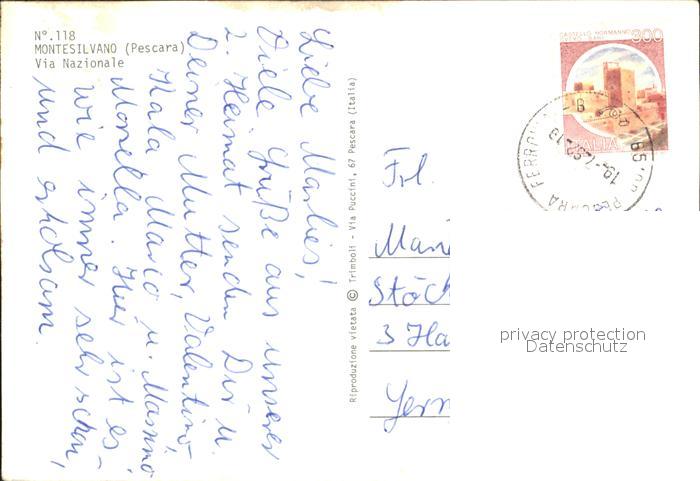 Nº.118
MONTESILVANO (Pescara)
Via Nazionale
Liebe Marlies!
Viele Grüße aus unserer
2. Heimat senden Dir u.
Deiner Mutter, Valentino,
Mario u. Massimo
Hier ist es
wie immer sehr schön,
und erholsam.
Riproduzione vietata © Trimboli - Via Puccini, 67 Pescara (Italia)
CASTELLO NORMANNO
SVEVO - BARI
300
ITALIA
PESCARA FERROVIA
Frl.
Stöc
3 Ha
privacy protection
Datenschutz